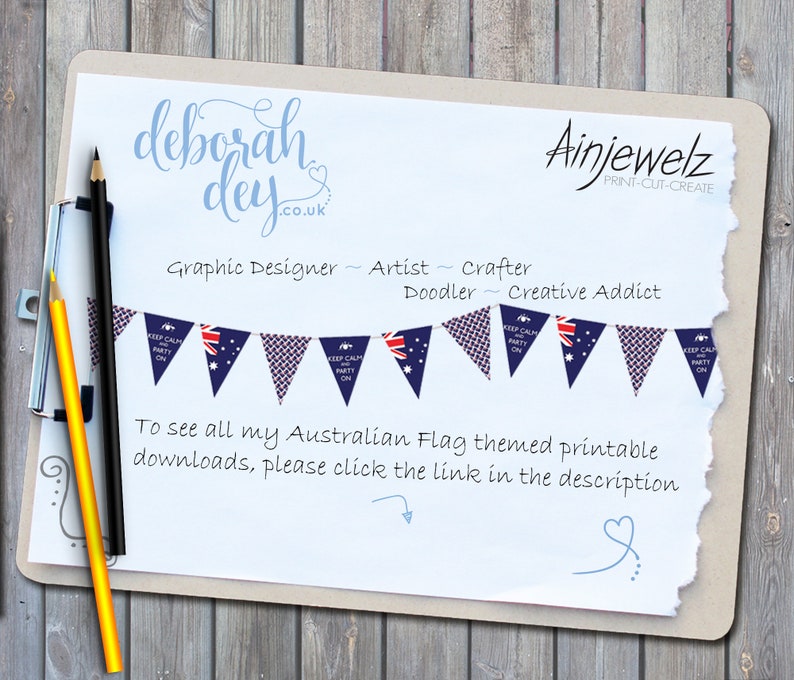 deborah
dey
.co.uk
Ainjewelz
PRINT-CUT-CREATE
Graphic Designer ~ Artist ~ Crafter
Doodler ~ Creative Addict
KEEP CALM
AND
PARTY
ON
KEEP CALM
AND
PARTY
ON
KEEP CALM
AND
PARTY
ON
KEEP CALM
AND
PARTY
ON
To see all my Australian Flag themed printable
downloads, please click the link in the description